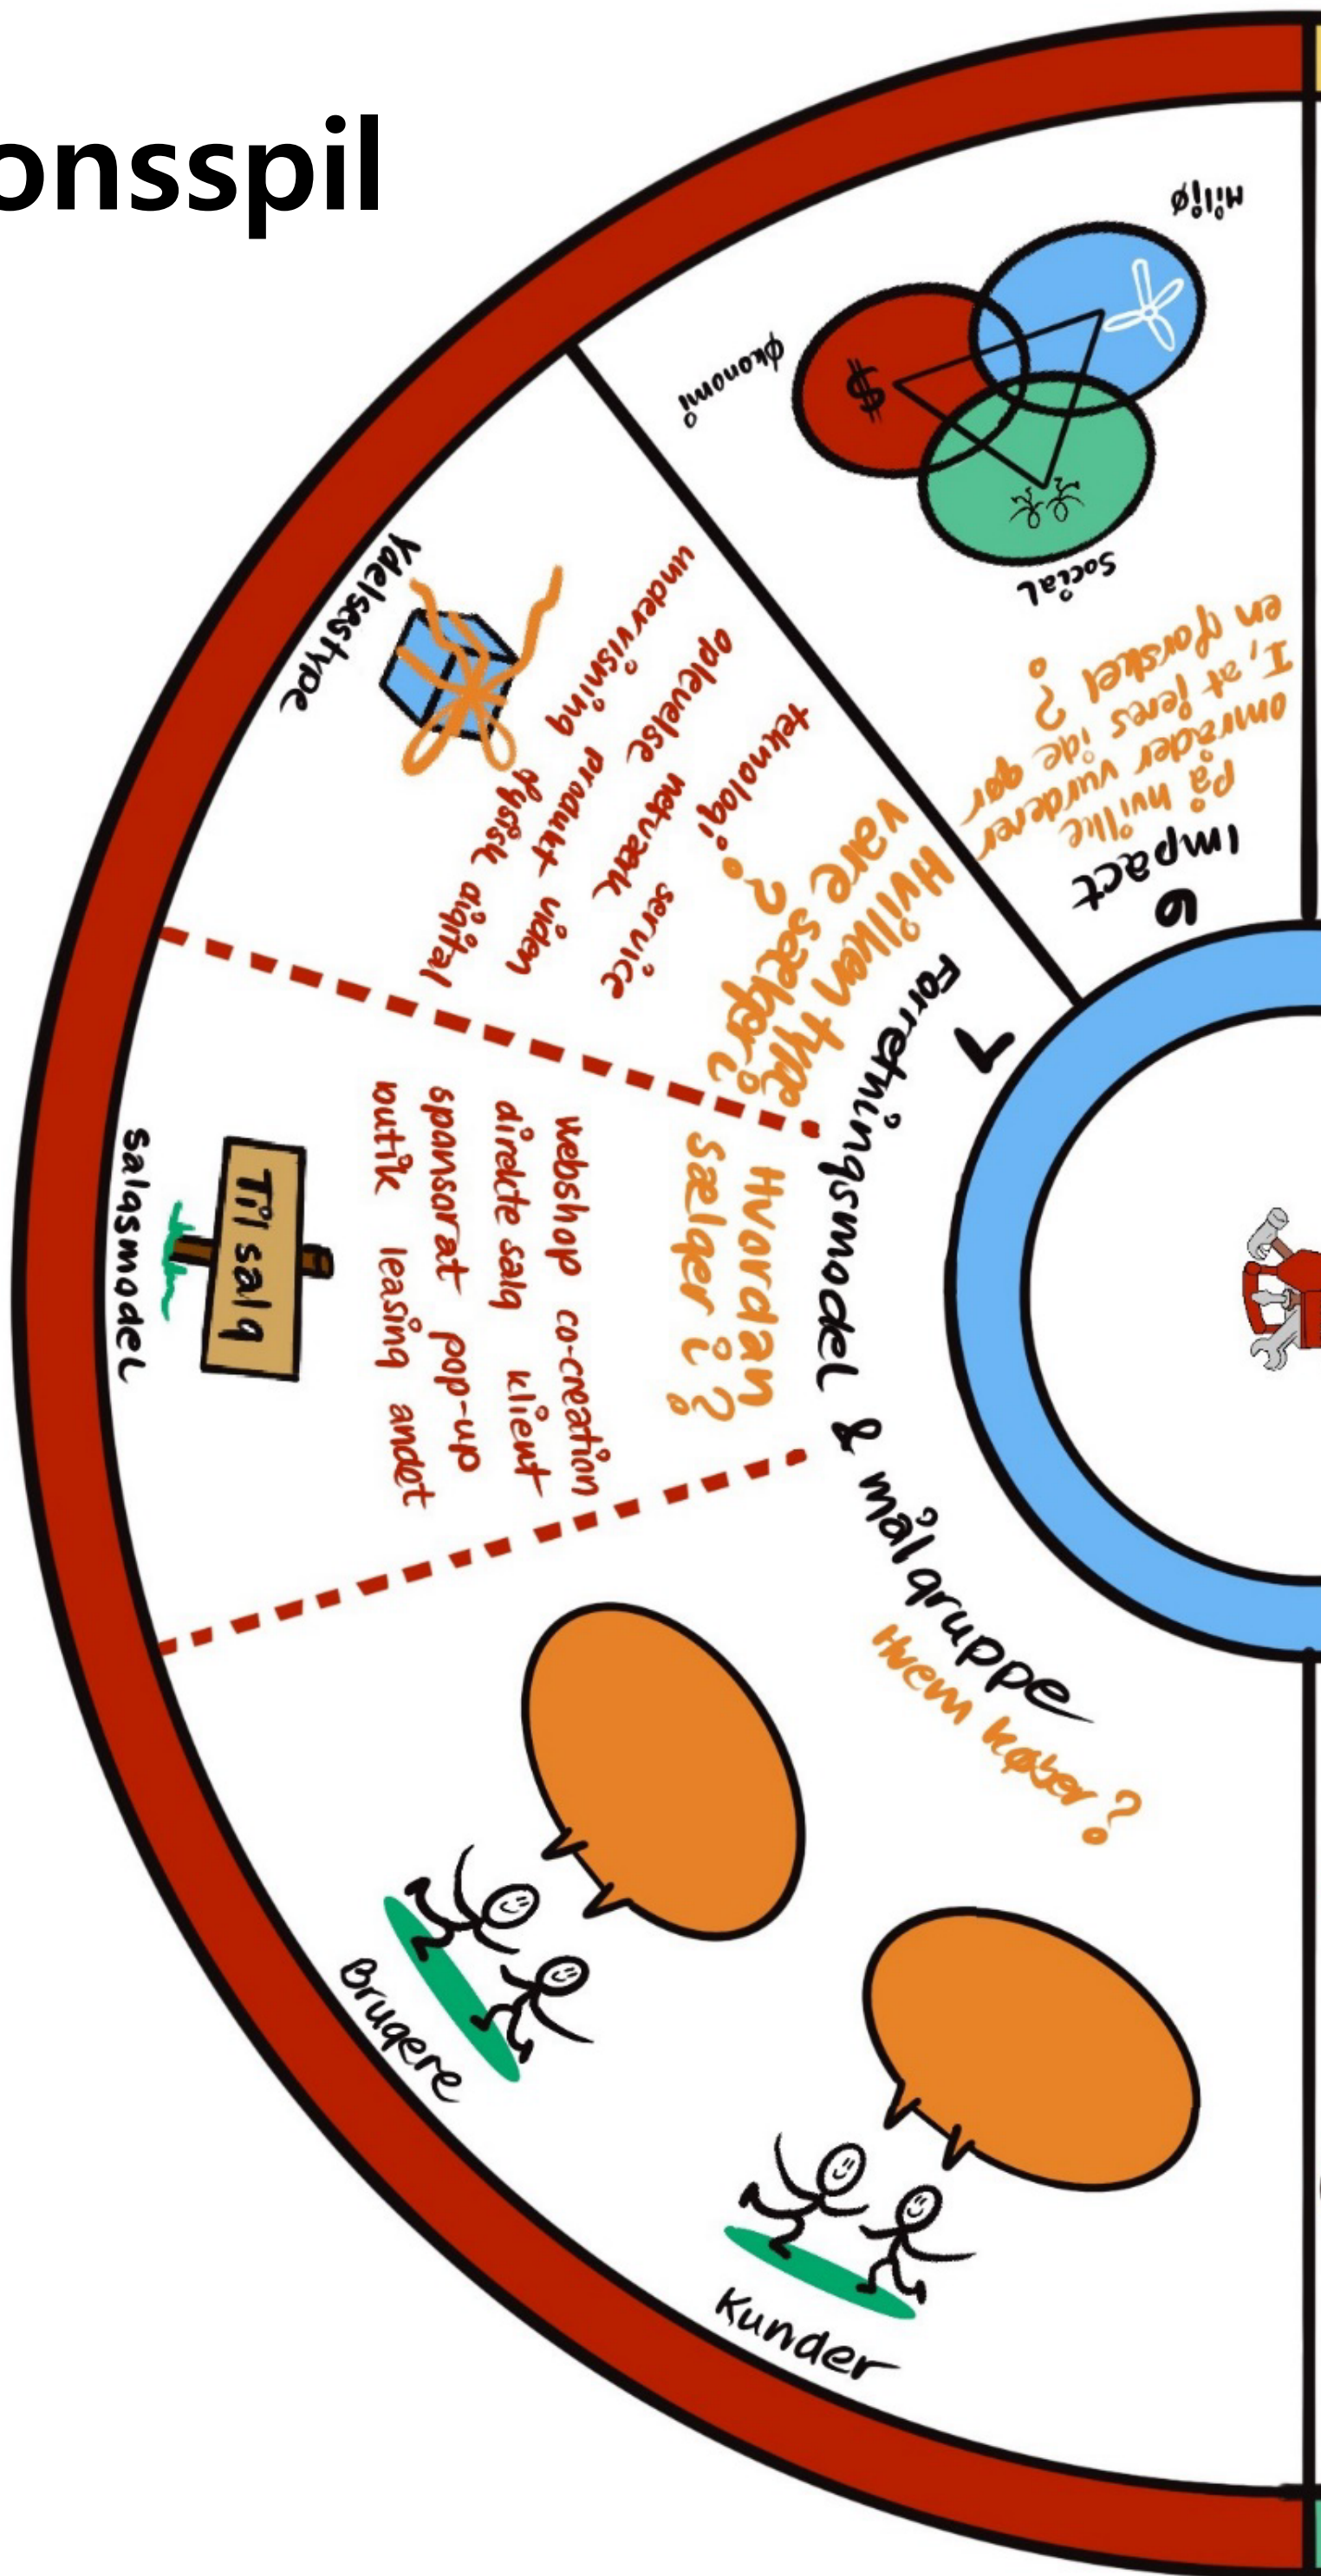 onsspil
6
Impact
På hvilke
områder vurderer
I, at jeres ide gør
en forskel ?
Miljø
Økonomi
$
Social
7
Forretningsmodel & målgruppe
Hvilken type
vare sælger i?
teknologi
oplevelse netværk service
undervisning produkt viden
fysisk digital
Ydelsestype
Hvordan
sælger i?
webshop co-creation
direkte salg klient
sponsorat pop-up
butik leasing andet
Til salg
salgsmodel
Hvem køber?
Brugere
Kunder